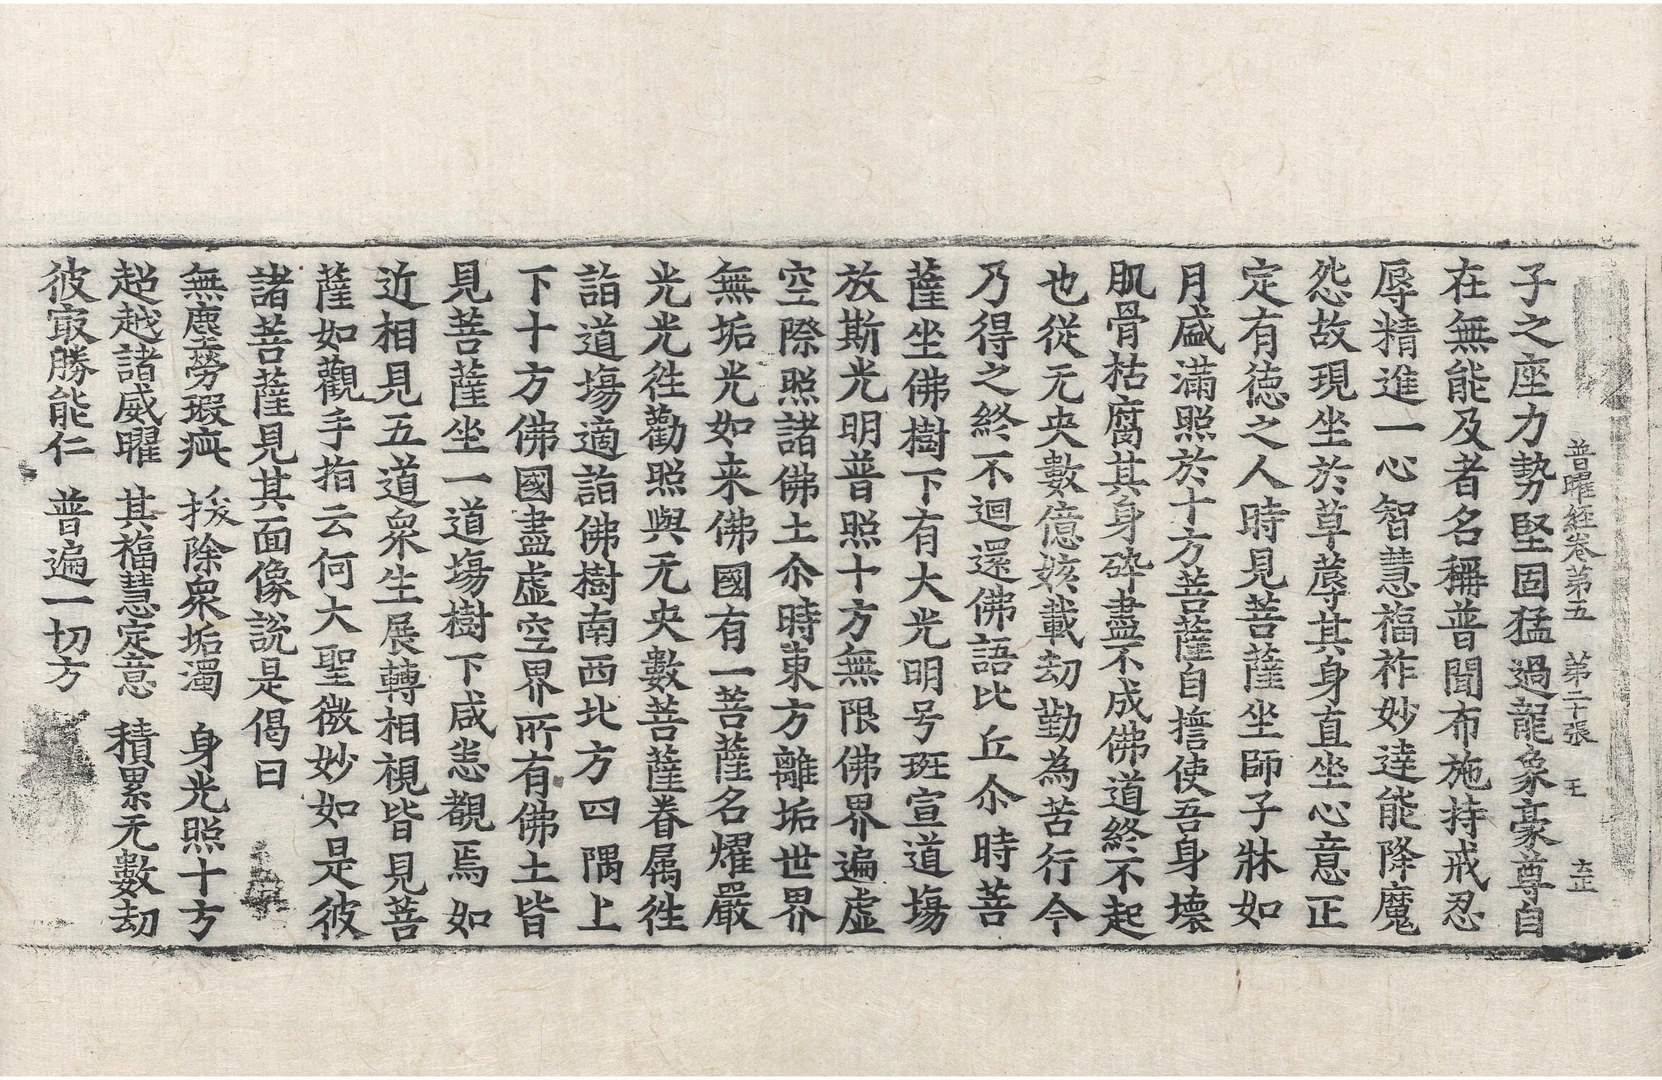 普曜經卷第五 第二十張 王
子之座力勢堅固猛過龍象豪尊自
在無能及者名稱普聞布施持戒忍
辱精進一心智慧福祚妙達能降魔
怨故現坐於草蓐其身直坐心意正
定有德之人時見菩薩坐師子牀如
月盛滿照於十方菩薩自擔使吾身壞
肌骨枯腐其身碎盡不成佛道終不起
也從无央數億姟載劫勤為苦行今
乃得之終不迴還佛語比丘尒時菩
薩坐佛樹下有大光明号班宣道場
放斯光明普照十方無限佛界遍虛
空際照諸佛土尒時東方離垢世界
無垢光如来佛國有一菩薩名燿嚴
光光徃勸照與无央數菩薩眷属徃
詣道場適詣佛樹南西北方四隅上
下十方佛國盡虛空界所有佛土皆
見菩薩坐一道場樹下咸悉覩焉如
近相見五道衆生展轉相視皆見菩
薩如觀手指云何大聖微妙如是彼
諸菩薩見其面像說是偈曰
無塵勞瑕疵 拔除衆垢濁 身光照十方
超越諸威曜 其福慧定意 積累无數劫
彼㝡勝能仁 普遍一切方